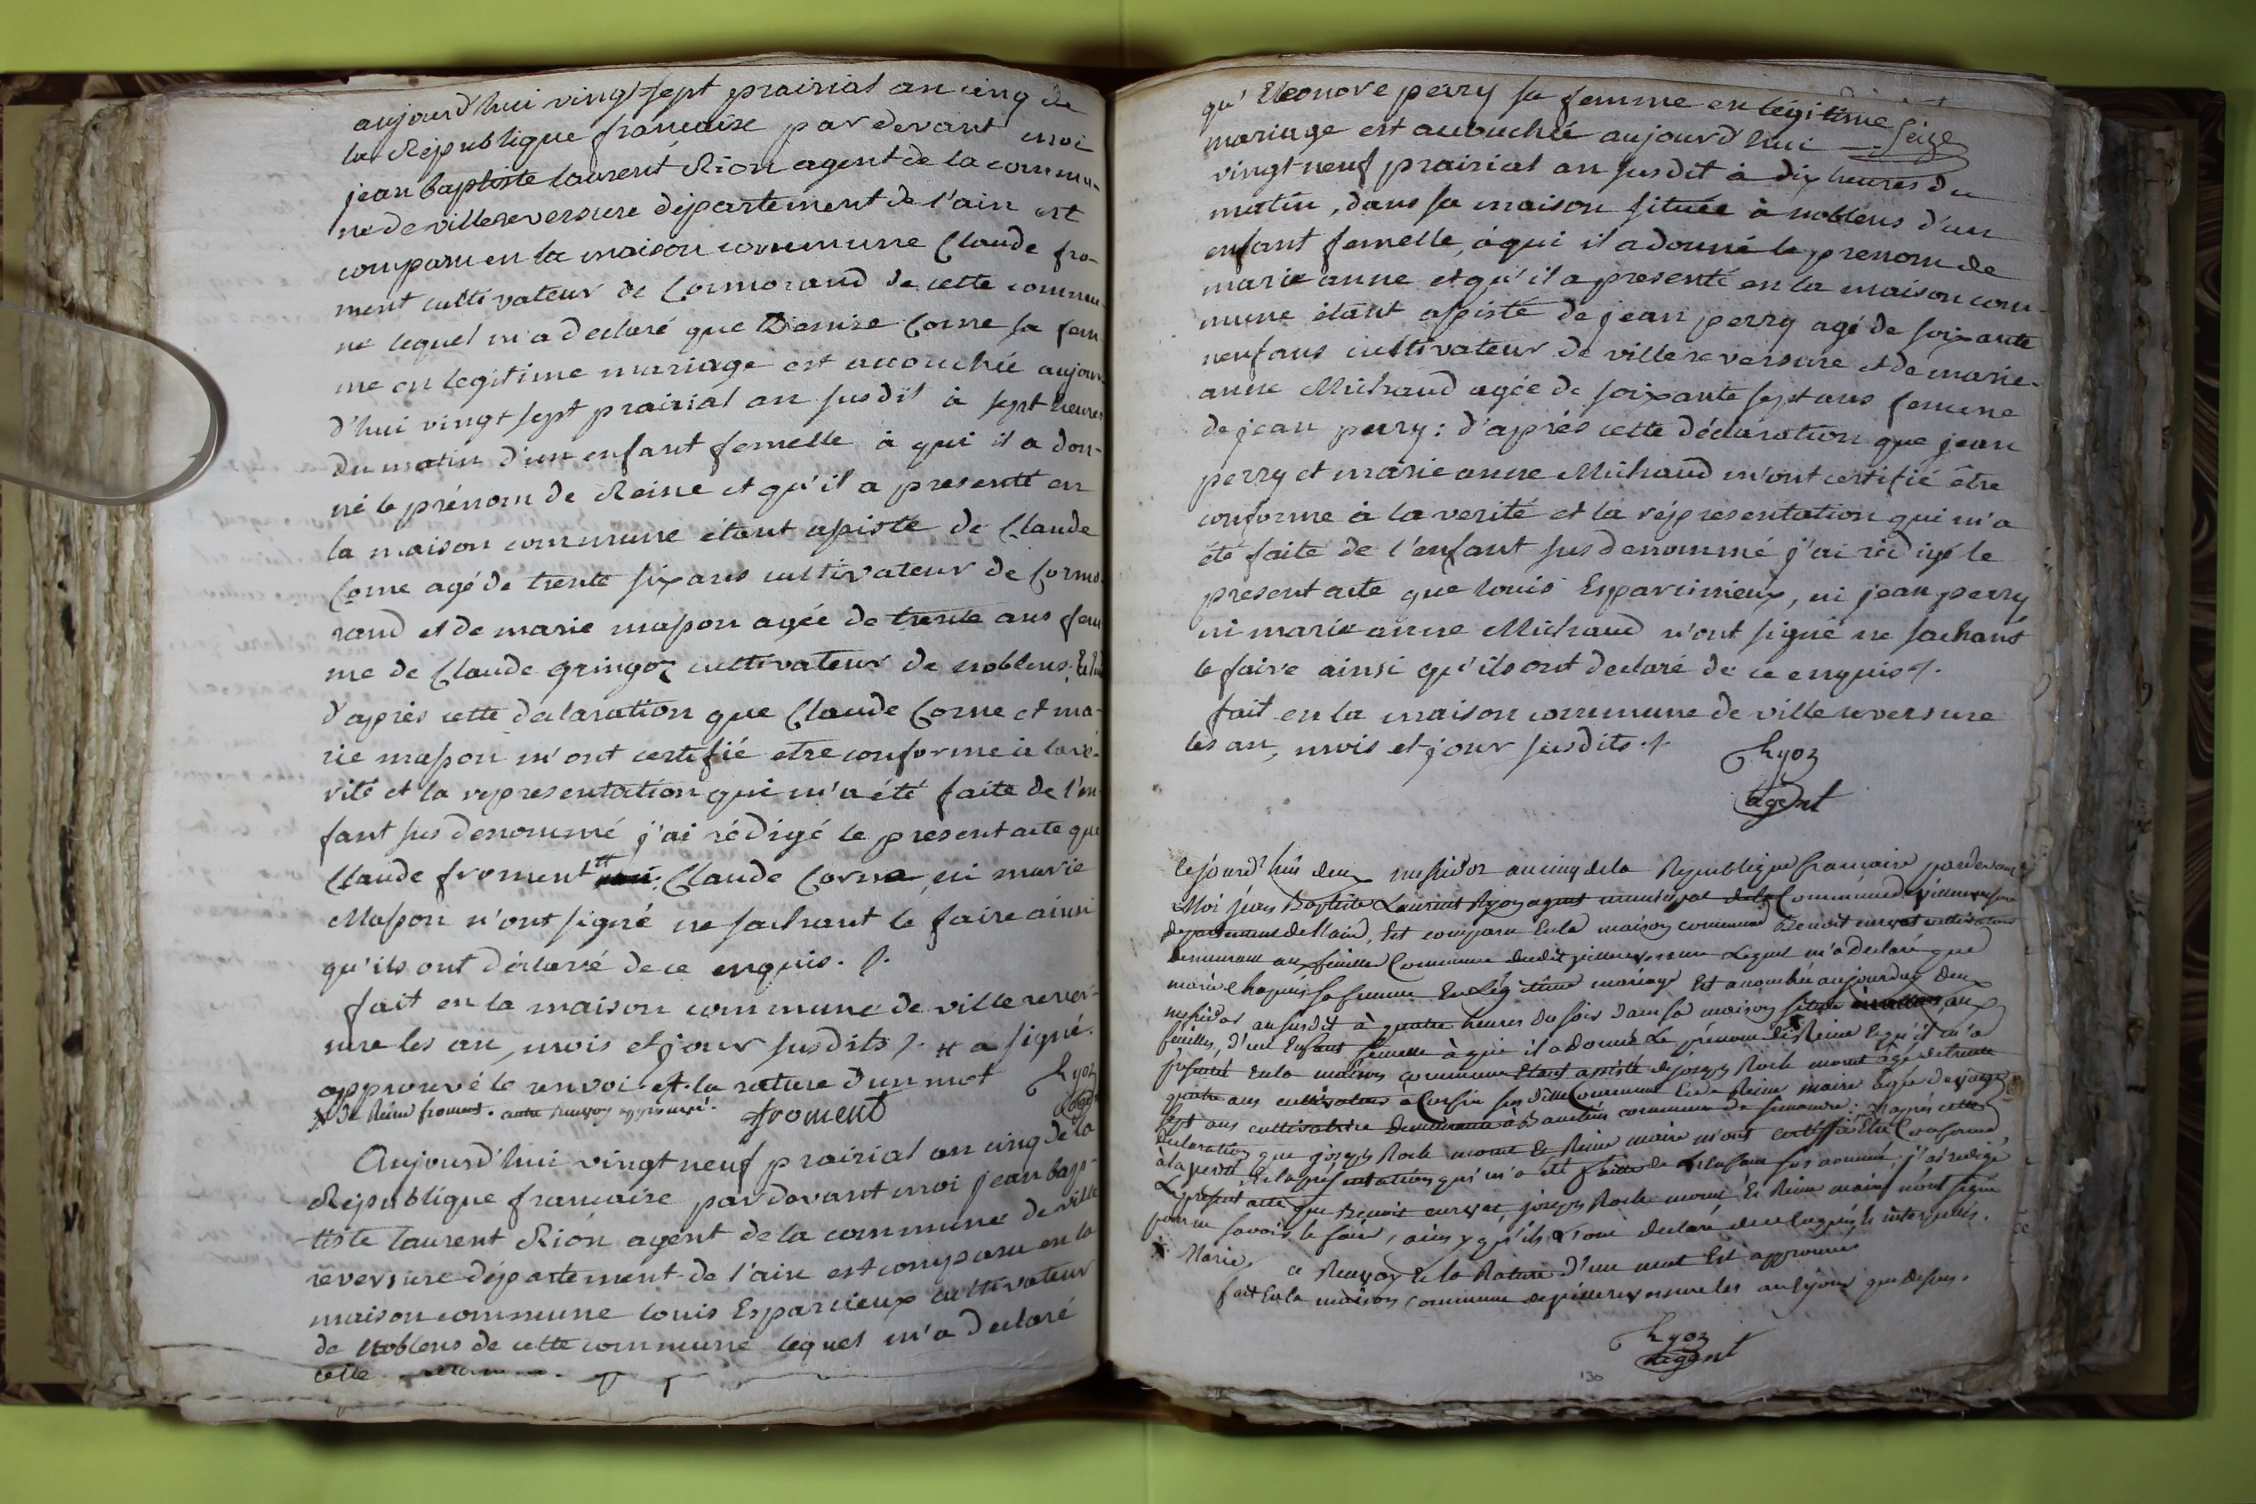 aujourd'hui vingt sept prairial an cinq de
la République française par devant moi
jean baptiste laurent Rion agent de la commu-
ne de villereversure département de l'ain est
comparu en la maison commune Claude fro-
ment cultivateur de Cormorand de cette commu-
ne lequel m'a declaré que Denise Corne sa fem
me en legitime mariage est accouchée aujour-
d'hui vingt sept prairial an susdit à sept heures
du matin d'un enfant femelle à qui il a don-
né le prénom de Reine et qu'il a presenté en
la maison commune étant assisté de Claude
Corne agé de trente six ans cultivateur de Cormo-
rand et de marie masson agée de trente ans fem
me de Claude gringoz cultivateur de noblens.
d'après cette declaration que Claude Corne et ma-
rie masson m'ont certifié etre conforme à la vé-
rité et la representation qui m'a été faite de l'en-
fant sus denommé j'ai rédigé le present acte que
Claude froment # Claude Corne, ni marie
Masson n'ont signé ne sachant le faire ainsi
qu'ils ont déclaré de ce enquis. /.
fait en la maison commune de ville rever-
sure les an, mois et jour susdits /. # a signé.
approuvé le renvoi et la rature d'un mot Ryoz
de Reine froment. autre renvoy approuvé. froment agent
Aujourd'hui vingt neuf prairial an cinq de la
République française par devant moi jean bap-
tiste laurent Rion agent de la commune de ville
reversure département de l'ain est comparu en la
maison commune louis Esparcieux cultivateur
de Noblens de cette commune lequel m'a declaré
cette
qu' Eleonore perry sa femme en légitime
mariage est accouchée aujourd'hui Seize
vingt neuf prairial an susdit à dix heures du
matin, dans sa maison située à noblens d'un
enfant femelle, à qui il a donné le prenom de
marie anne et qu'il a presenté en la maison com-
mune étant assisté de jean perry agé de soixante
neuf ans cultivateur de ville reversure et de marie-
anne Michaud agée de soixante sept ans femme
de jean perry: d'après cette déclaration que jean
perry et marie anne Michaud m'ont certifié être
conforme à la verité et la répresentation qui m'a
été faite de l'enfant sus denommé j'ai rédigé le
present acte que louis Esparcieux, ni jean perry
ni marie anne Michaud n'ont signé ne sachant
le faire ainsi qu'ils ont declaré de ce enquis /.
fait en la maison commune de ville reversure
les an, mois et jour susdits. /.
Ryoz
agent
Cejourd'hui deux messidor an cinq de la Republique française pardevant
Moi jean Baptiste Laurent Ryoz agent municipal de la Commune de villereversure
departement de l'ain, Est comparu En la maison commune Benoit cultivateur
demeurant aux feuilles Commune dudit villereversure Lequel m'a declaré que
marie sa femme En Légitime mariage Est accouchée aujourdhuy deux
messidor an susdit à quatre heures du soir dans sa maison située aux
feuilles, d'un Enfant femelle à qui il a donné Le prénom de Reine Et qu'il m'a
presenté En la maison commune Etant assisté de joseph Roch agé de trente
quatre ans cultivateur à susdite Commune Et de Reine maire agée de
sept ans cultivatrice demeurante à commune de simandre. D'après cette
declaration que joseph Roch Et Reine maire m'ont certiffié Etre Conforme
à la verité, Et la présentation qui m'a été faitte de L'Enfant sus nommé, j'ai redigé
Le présent acte que Benoit joseph Roch Et Reine maire n'ont signé
pour ne savoir le faire, ainsy qu'ils L'ont declaré de ce Enquis Et interpellés.
Marie. ce Renvoy Et la Rature d'un mot Est approuvés
fait En la maison commune de villereversure les an et jour que dessus.
Ryoz
agent
130